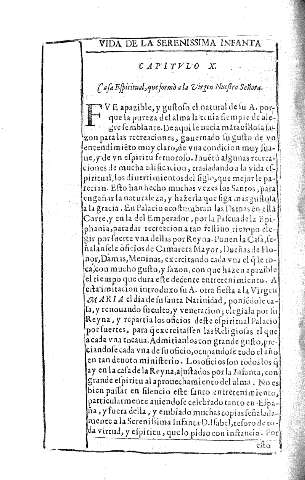 VIDA DE LA SERENISSIMA INFANTA
CAPITVLO X.
Casa Espiritual, que formò a la Virgen Nuestra Señora.
FVE apazible, y gustoso el natural de su A. porque
la pureza del alma tenia siempre de alegre
semblante. De aqui le nacia marauillosa sazon
para las recreaciones, gouernado su gusto de vn
entendimiẽto muy claro, de vna condicion muy suaue,
y de vn espiritu feruoroso. Inuẽtò algunas recreaciones
de mucha edificacion, trasladando a la vida espiritual,
los diuertimientos del siglo, que mejor le parecian.
Esto han hecho muchas vezes los Santos, para
engañar la naturaleza, y hazerla que siga mas gustosa
la gracia. En Palacio acostumbran las Damas en esta
Corte, y en la del Emperador, por la Pascua de la Epiphania,
para dar recreacion a tan festiuo tiempo elegir
por suerte vna dellas por Reyna. Ponenla Casa, señalansele
oficios de Camarera Mayor, Dueñas de Honor,
Damas, Meninas, exercitando cada vna el q̃ le toca,
con mucho gusto, y sazon, con que hazen apazible
el tiempo que dura este decente entretenimiento. A
esta imitacion introduxo su A. otra fiesta a la Virgen
MARIA el dia de su santa Natiuidad, poniẽdole casa,
y renouando seculto, y veneracion; elegiala por su
Reyna, y repartia los oficios deste espiritual Palacio
por suertes, para q̃ exercitassen las Religiosas el que
a cada vna tocaua. Admitianlos con grande gusto, preciandole
cada vna de su oficio, ocupandose todo el año
en tan deuoto ministerio. Los oficios son todos los q̃
ay en la casa de la Reyna, ajustados por la Infanta, con
grande espiritu al aprouechamiento del alma. No es
bien passar en silencio este santo entretenimiento,
particularmente auiendose celebrado tanto en España,
y fuera della, y embiado muchas copias señaladamente
a la Serenissima Infanta D. Isabel, tesoro de toda
virtud, y espiritu, que lo pidio con instancia. Por
esto